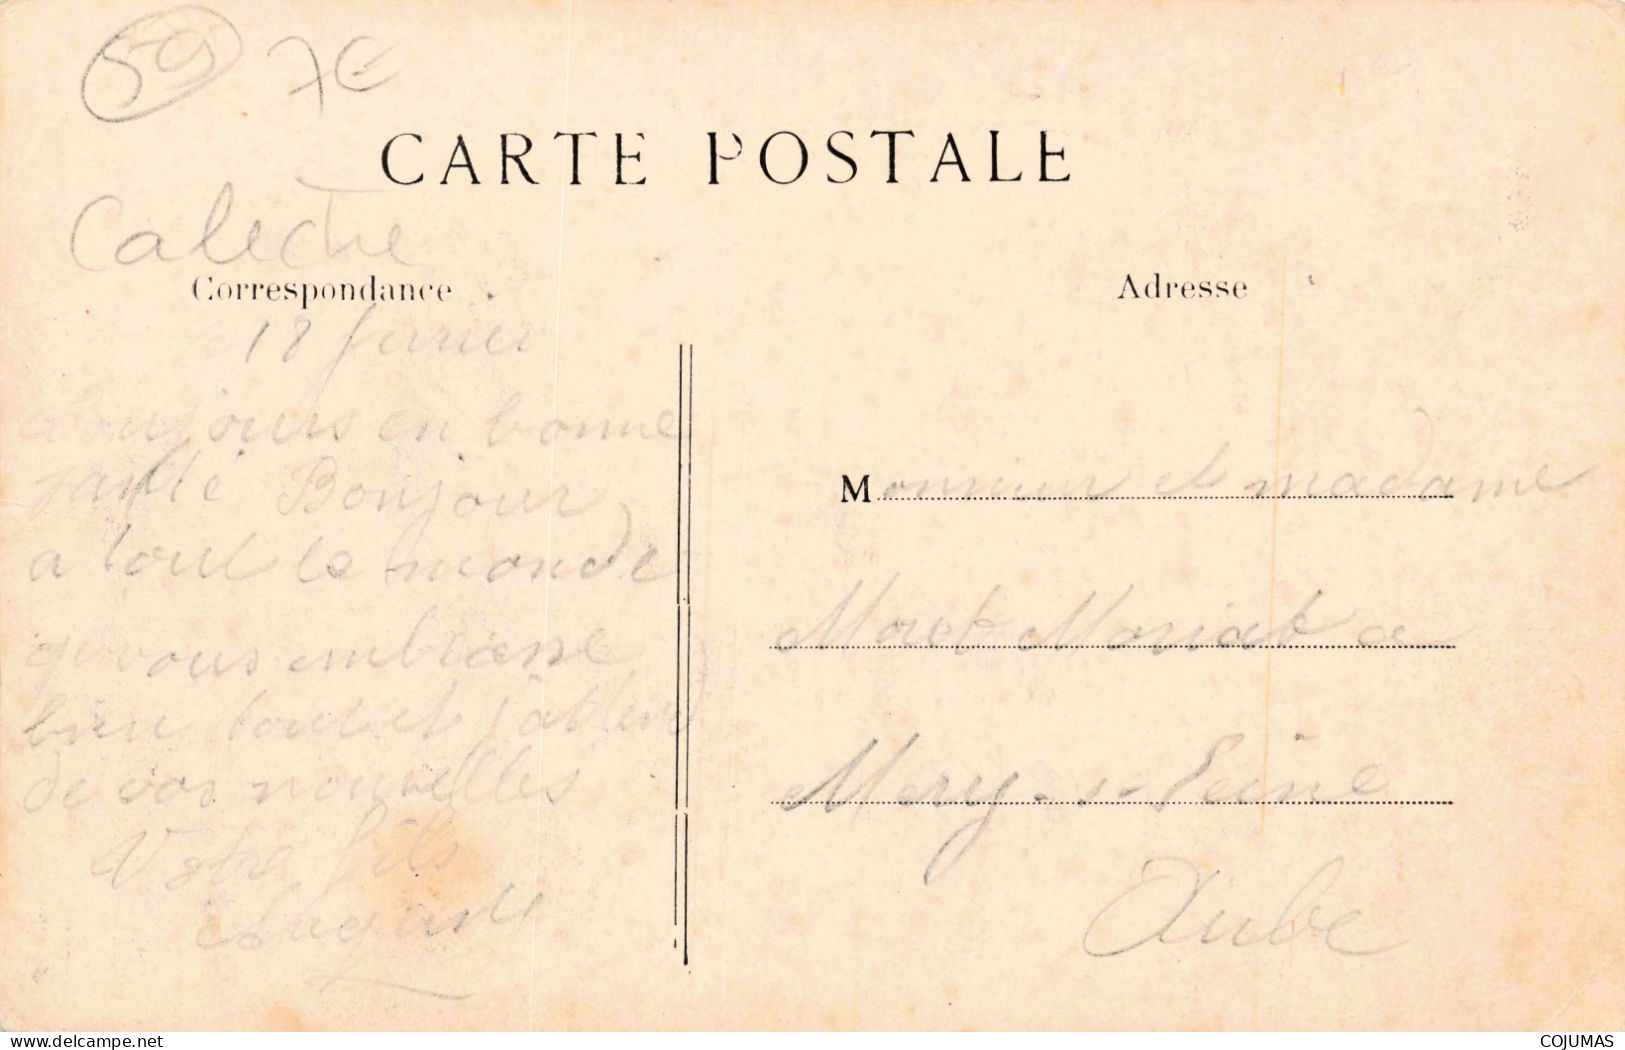 59 7€
CARTE POSTALE
Caleche
Correspondance
18 fevrier
toujours en bonne
santé Bonjour
a tout le monde
vous embrasse
bien tous et j'attend
de vos nouvelles
Votre fils
Auguste
Adresse
Monsieur et madame
Moriat a
Mery-s-Seine
Aube
delcampe.net
COJUMAS